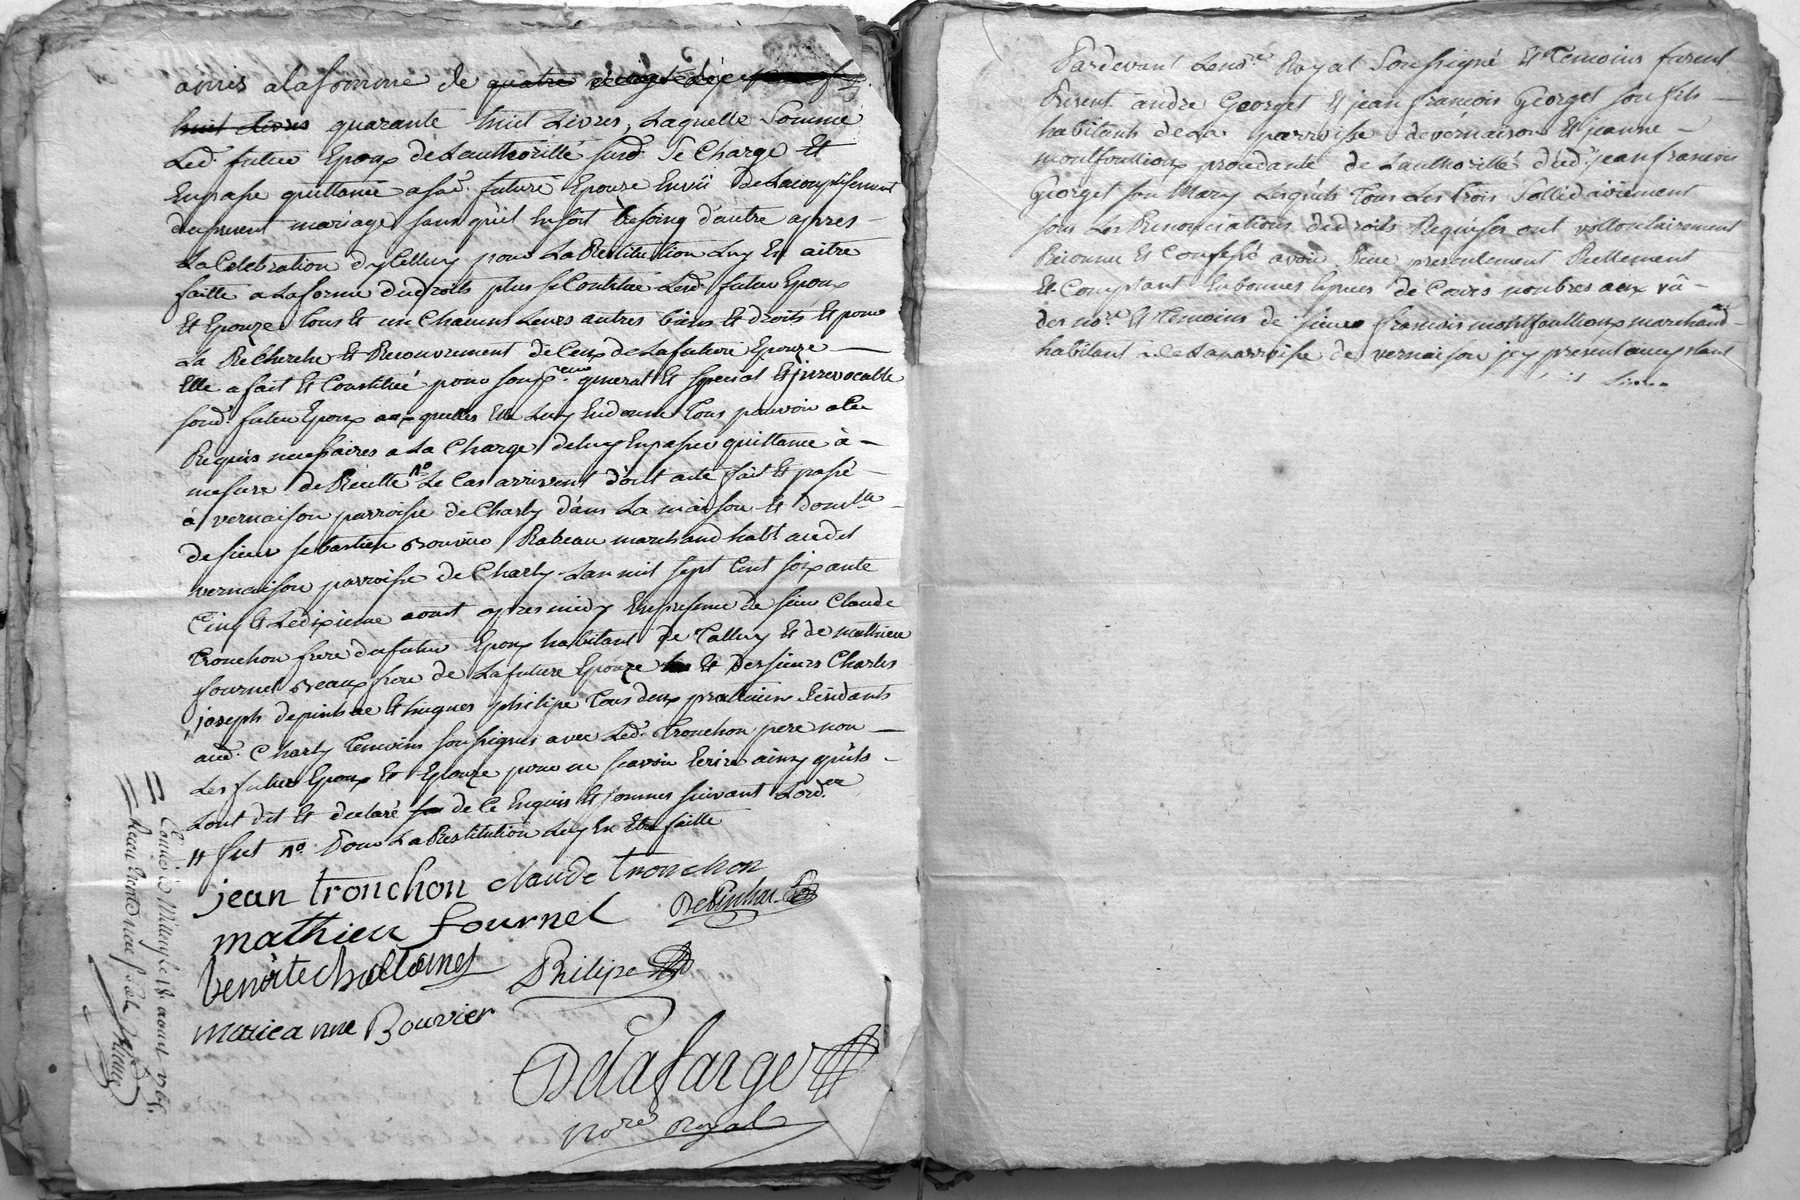 amis a la somme de quatre
huit livres quarante huit Livres, Laquelle Somme
Led. futur Epoux de Lauthorité susd. Se Charge Et
En passe quittance a sad. future Epouze En vüe de Lacomplissement
du present mariage sans qu'il en soit besoing d'autre apres
La Celebration dycelluy pour La Restitution Luy En aitre
faitte a La forme du droits plus se Constitue Lesd. futur Epoux
Et Epouze tous Et un Chacuns Leurs autres biens Et droits Et pour
La Recherche Et Recouvrement de Ceux de La future Epouze
Elle a fait Et Constitué pour son general Et special Et jrrevocable
sond. futur Epoux auxquelles Elle Luy En donne tous pouvoir a Ce
Requis necessaires a La Charge de luy En passer quittance à
mesure de Récitte no Le Cas arrivant d'ont acte fait Et passé
à vernaison parroisse de Charly dans La maison Et domlle
de sieur sebastien Bouvier Rabeau marchand habt audit
vernaison parroisse de Charly Lan mil sept Cent soixante
Cinq Et Le dixieme aoust apres midy En presence de sieur Claude
tronchon frere du futur Epoux habitant de Talluy Et de mathieu
fournel Beaux frere de La future Epouze Et des sieurs Charles
joseph depinhac Et hugues philipe Tous deux praticiens Residants
aud. Charly Temoins soussignés avec Led. tronchon pere non
Les futur Epoux Et Epouze pour ne sçavoir Ecrire ainsy qu'ils
Lont dit Et declaré de Ce Enquis Et sommes suivant Lord.ce
fut no Pour La Restitution Luy En Etre faitte
jean tronchon claude tronchon
mathieu fournel Depinhac
benoite chattainet Philipe
marieanne Bouvier
Delafarge
no.re Royal
Con.lé à Millery le 18. aout 1765.
Recu trente neuf s.
Pardevant Le no.re Royal Soussigné Et Temoins furent
Present andre Georget Et jean francois Georget son fils
habitants de La parroisse de vernaison Et jeanne
montfoullioux procedante de Lauthorité dud. jean francois
Georget son Mary Lesquels Tous Les trois Sollidairement
sous Les Renonciations de droits Requises ont vollontairement
Reconnu Et Confessé avoir Reçu presentement Reellement
Et Comptant En bonnes Especes de Cours nombrés aux vû
des no.re Et temoins de sieur francois montfoullioux marchand
habitant de La parroisse de vernaison jcy present acceptant